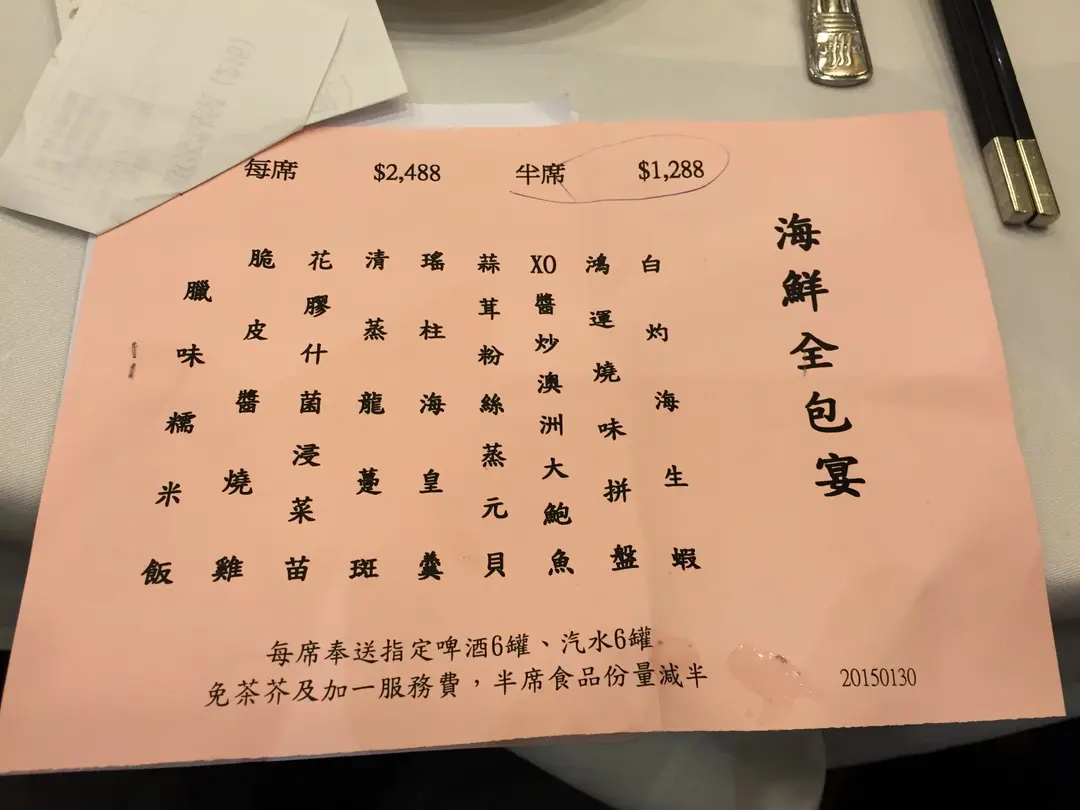 每席 $2,488 半席 $1,288
海鮮全包宴
白灼海生蝦
鴻運燒味拼盤
XO醬炒澳洲大鮑魚
蒜茸粉絲蒸元貝
瑤柱海皇羹
清蒸龍躉斑
花膠什菌浸菜苗
脆皮醬燒雞
臘味糯米飯
每席奉送指定啤酒6罐、汽水6罐
免茶芥及加一服務費，半席食品份量減半
20150130